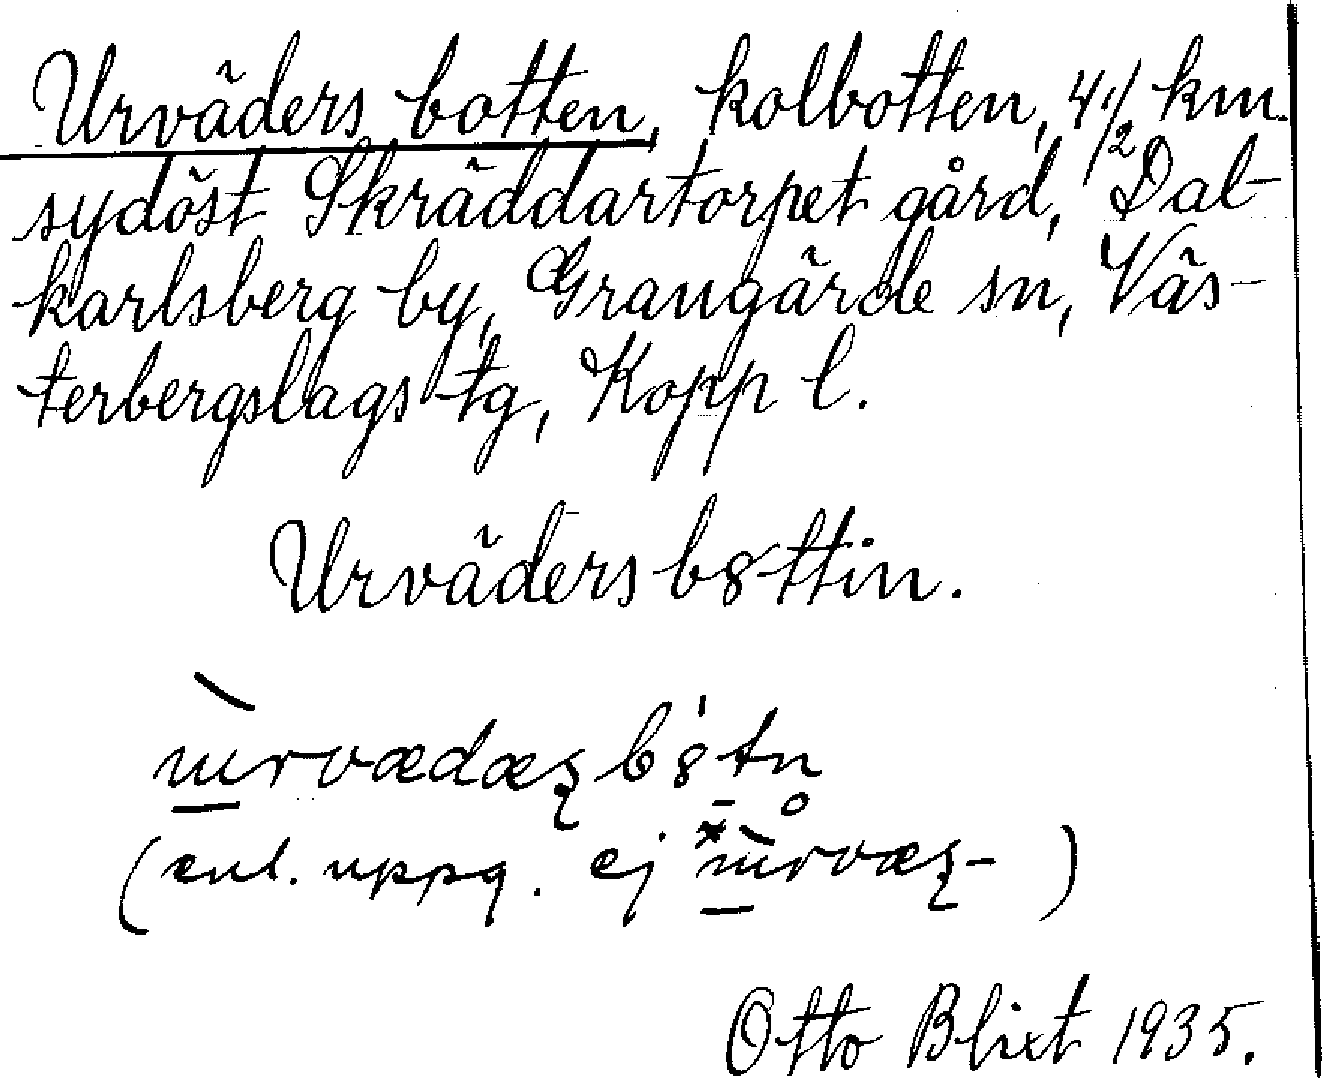 Urväders botten, kolbotten, 4 1/2 km.
sydöst Skräddartorpet gård, Dal-
karlsberg by, Grangärde sn, Väs-
terbergslags tg, Kopp l.
Urvädersb8ttin.
ɯ̀rvædæʂb8́tn̥
(enl. uppg. ej *ɯ̀rvæʂ-)
Otto Blixt 1935.